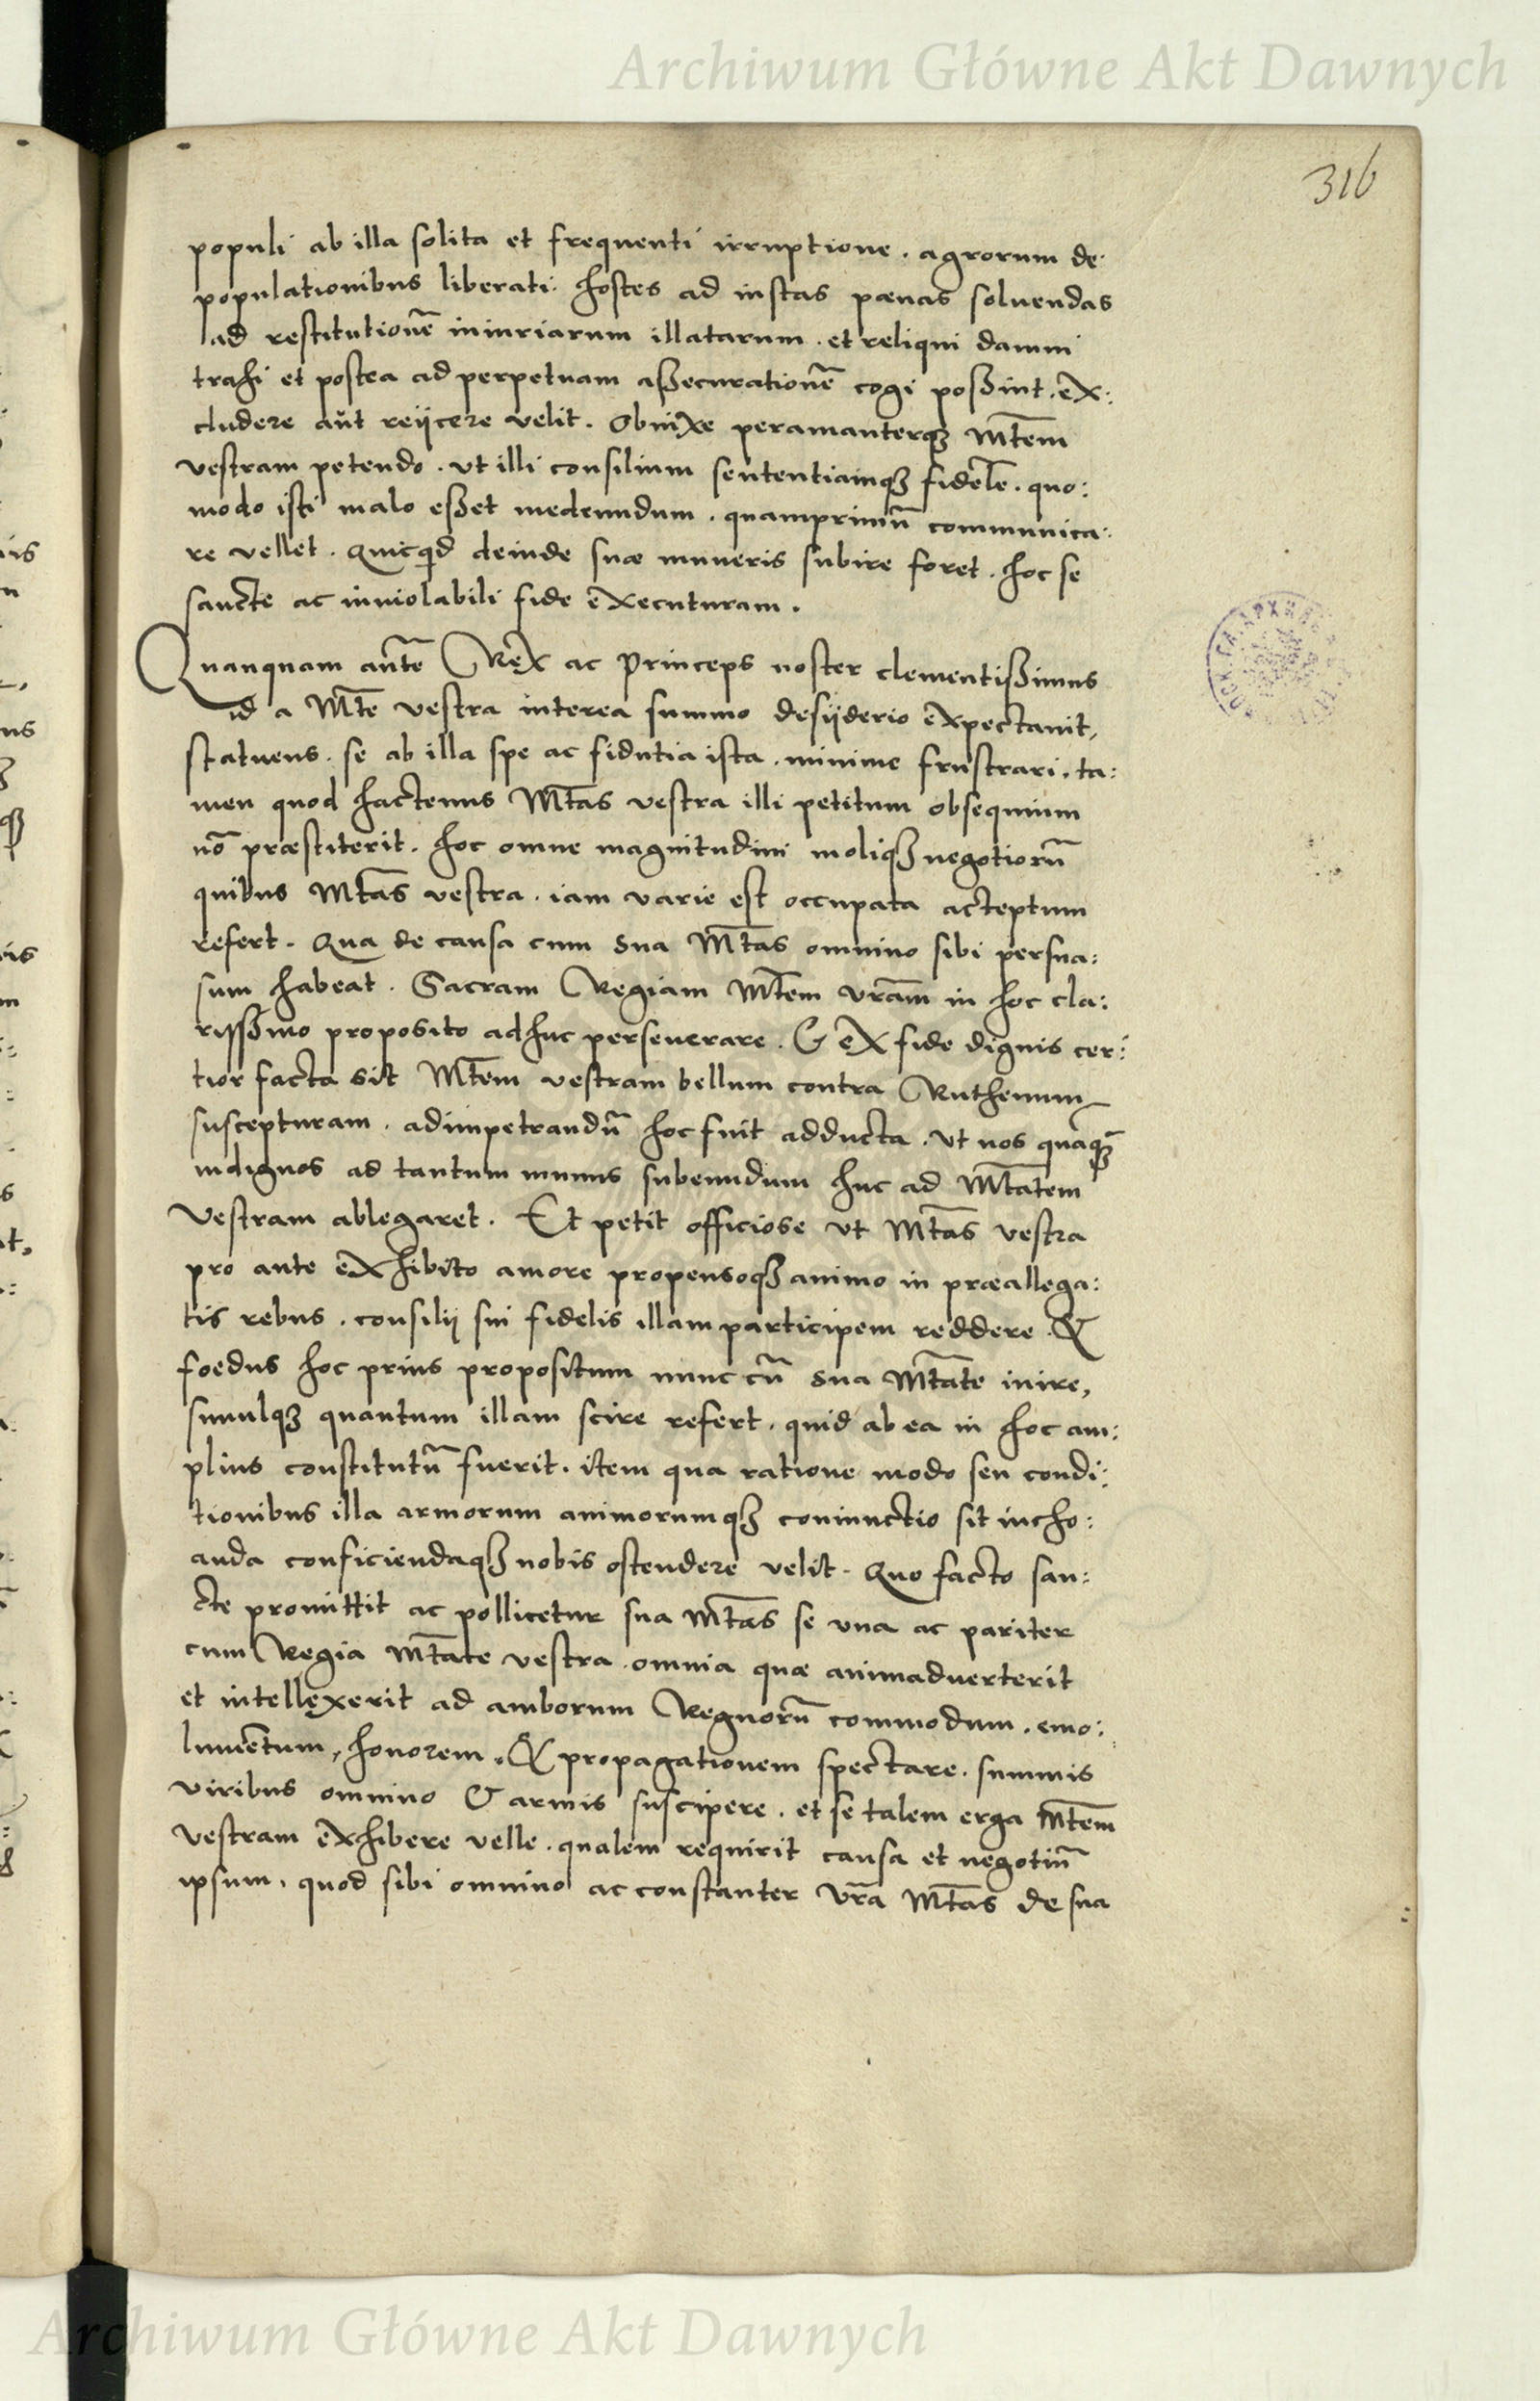 Archiwum Główne Akt Dawnych
316
populi ab illa solita et frequenti irruptione . agrorum de:
populationibus liberati: hostes ad iustas pœnas soluendas
ad restitutionē iniuriarum illatarum . et reliqui damni
trahi et postea ad perpetuam aßecurationē cogi poßint . ex:
cludere aūt reijcere velit . Obnixe peramanterqꝫ Mt̄em
vestram petendo . vt illi consilium sententiamqꝫ fidelē . quo:
modo isti malo eßet medendum . quamprimū communica:
re vellet . Quicqd deinde suæ muneris subire foret . hoc se
sancte ac inuiolabili fide executuram .
Quanquam autē Rex ac Princeps noster clementißimus
id a Mt̄e vestra interea summo desijderio expectauit,
statuens . se ab illa spe ac fidutia ista . minime frustrari . ta:
men quod hactenus Mt̄as vestra illi petitum obsequium
nō præstiterit . hoc omne magnitudini moliqꝫ negotiorū
quibus Mt̄as vestra . iam varie est occupata acceptum
refert . Qua de causa cum sua Mt̄as omnino sibi persua:
sum habeat . Sacram Regiam Mt̄em vrām in hoc cla:
rissimo proposito adhuc perseuerare . & ex fide dignis cer:
tior facta sit Mt̄em vestram bellum contra Ruthenum
suscepturam . ad impetrandū hoc fuit adducta . vt nos quāqꝫ
indignos ad tantum munus subeundum huc ad Mt̄atem
vestram ablegaret . Et petit officiose vt Mt̄as vestra
pro ante exhibito amore propensoqꝫ animo in præallega:
tis rebus . consilij sui fidelis illam participem reddere . &
foedus hoc prius propositum nunc cū sua Mt̄ate inire,
simulqꝫ quantum illam scire refert . quid ab ea in hoc am:
plius constitutū fuerit . item qua ratione modo seu condi:
tionibus illa armorum animorumqꝫ coniunctio sit incho:
anda conficiendaqꝫ nobis ostendere velit . Quo facto san:
cte promittit ac pollicetur sua Mt̄as se vna ac pariter
cum Regia Mt̄ate vestra . omnia quæ animaduerterit
et intellexerit ad amborum Regnorū commodum . emo:
lumētum, honorem . & propagationem spectare . summis
viribus omnino & armis suscipere . et se talem erga Mt̄em
vestram exhibere velle . qualem requirit causa et negotiū
ipsum . quod sibi omnino ac constanter vrā Mt̄as de sua
Archiwum Główne Akt Dawnych